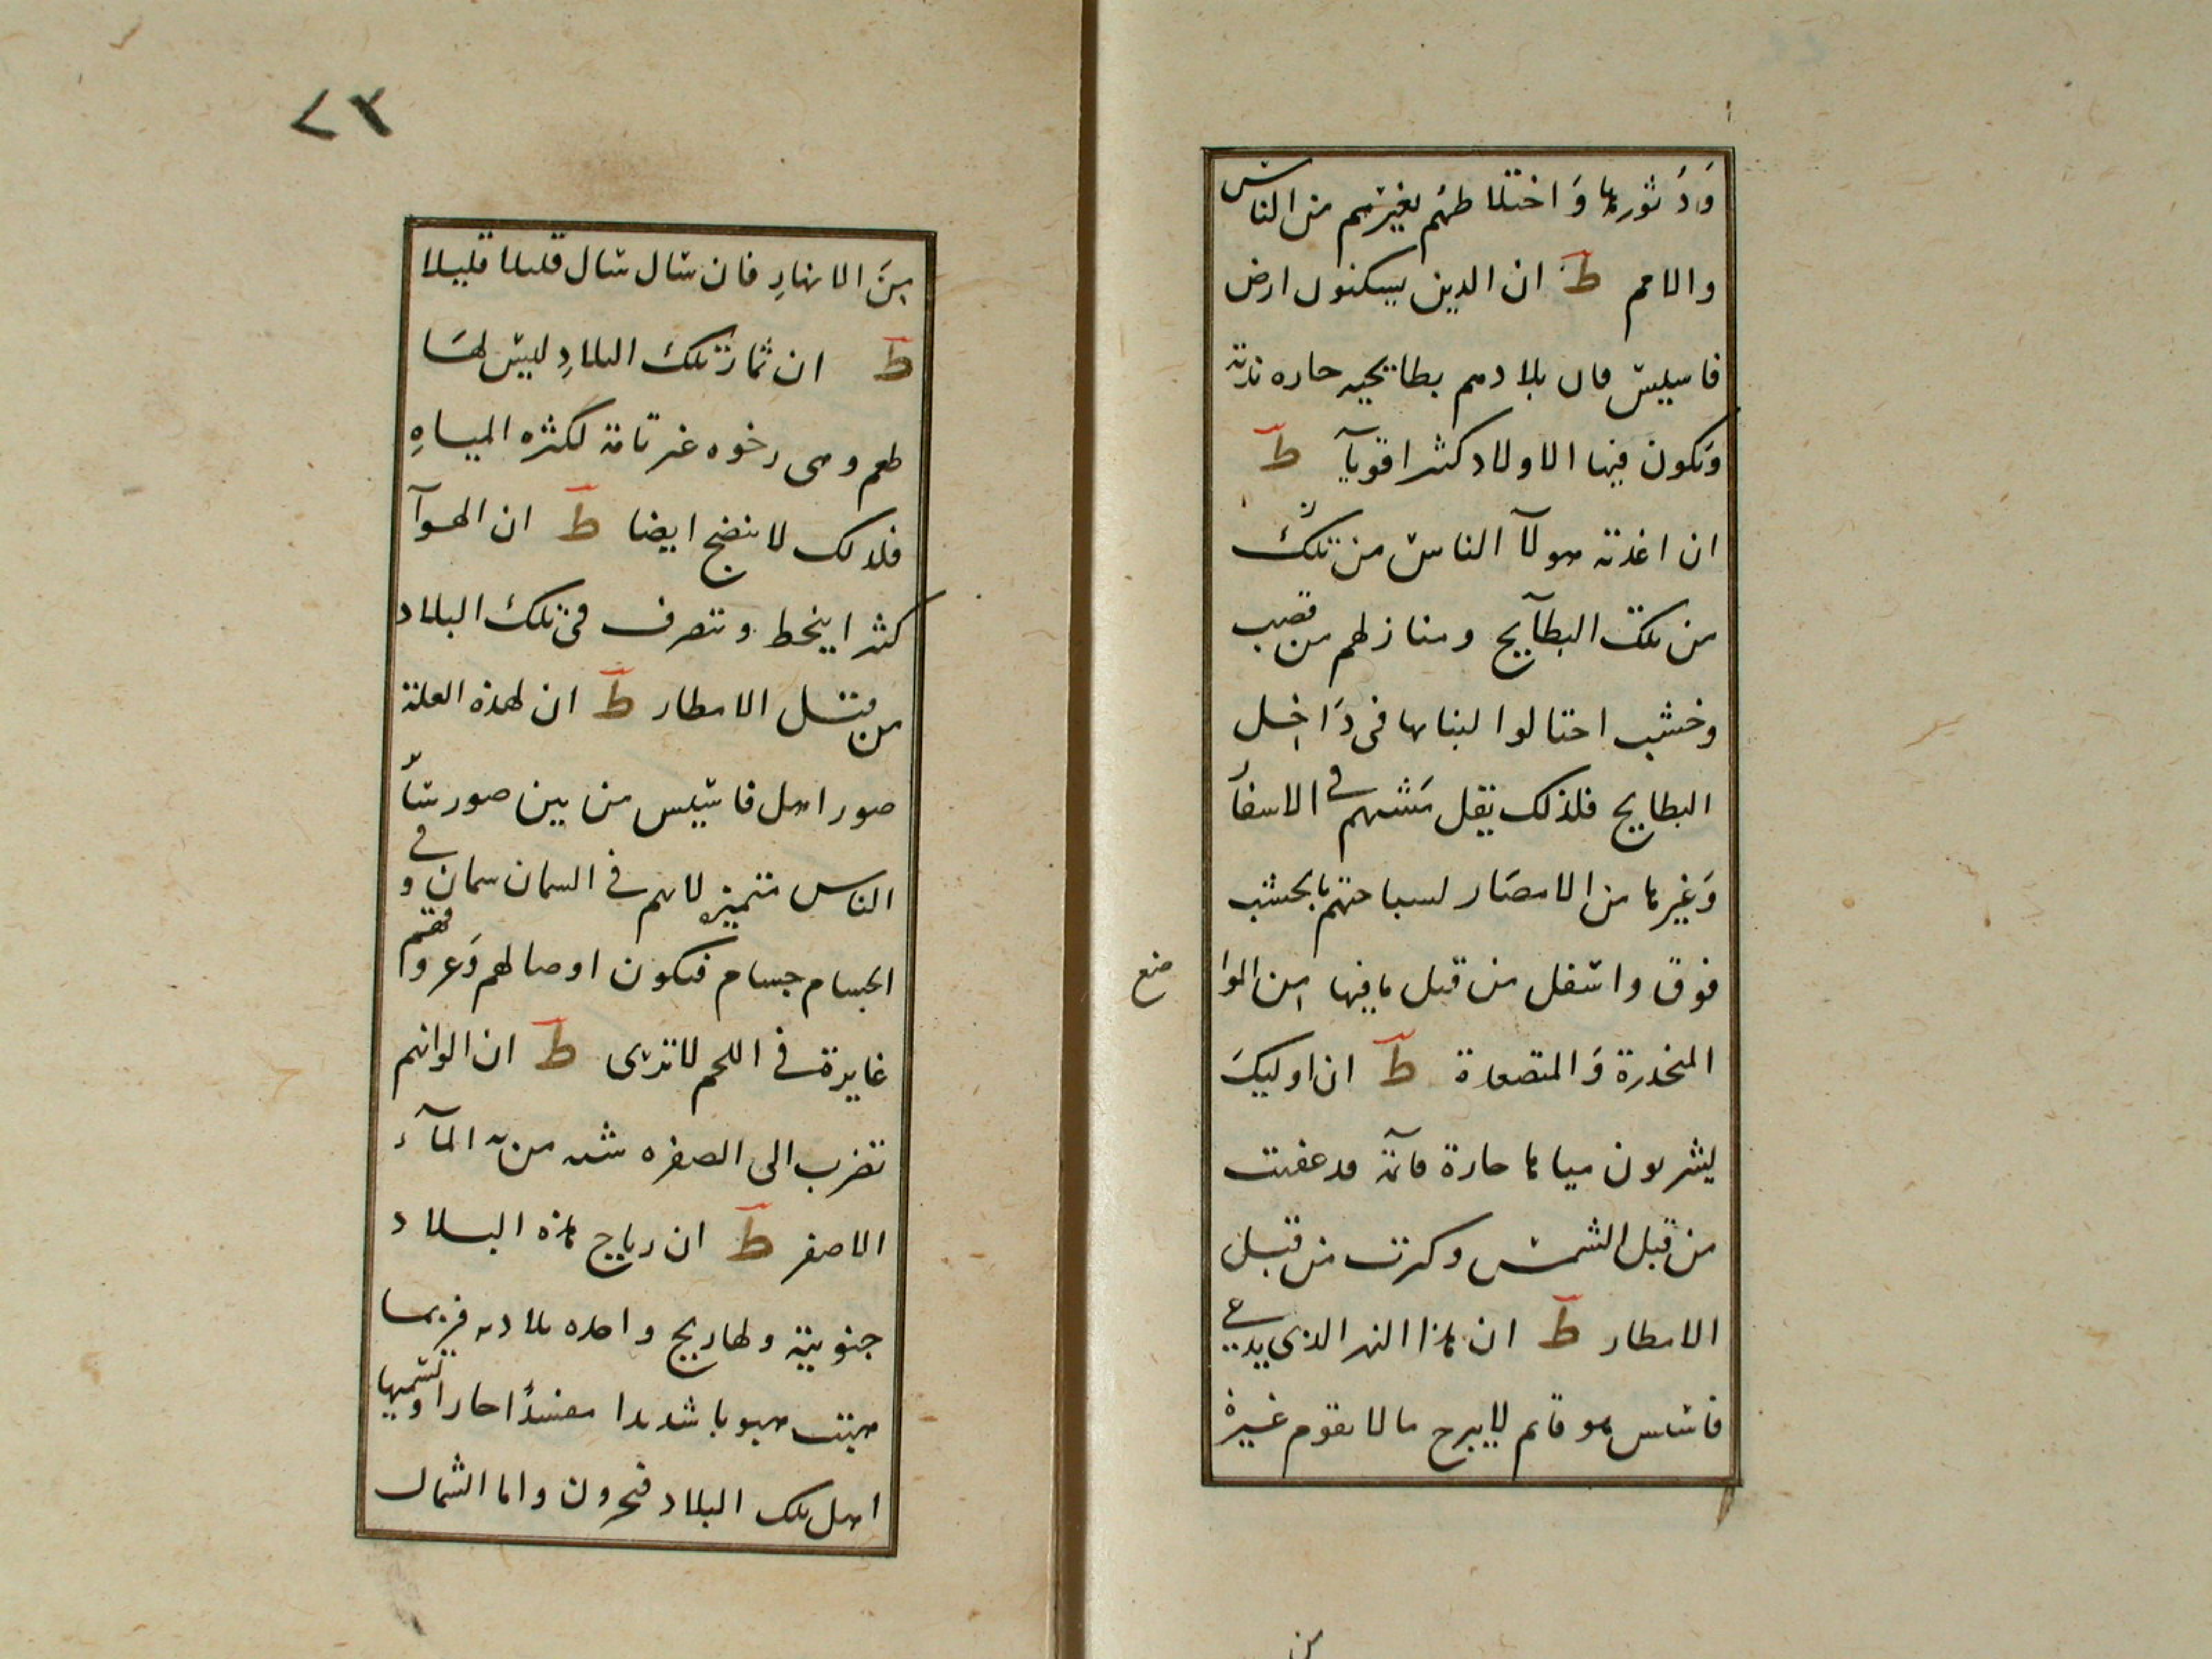 وَدَثورها وَاختلاطهُم بغيرهم من الناس
والامم ط ان الدين يسكنون ارض
فاسيس فان بلادهم بطايحيه حاره نزيّة
وَتكون فيها الاولاد كثيرا قوياً ط
ان اغذية هولآ الناس من تلك
من تلك البطآيح ومنازلهم من قصب
وخشب احتالوا لبنايها فى دَاخِل
البطايح فلذلك يقل مَشيهم في الاسفار
وَغيرها من الامصَار لسباحتهم بالخشب
فوق واسفل من قبل ما فيها من الموا
ضع
المنحدرة وَالمتصعدة ط ان اوليكَ
يشربون مياها حارة قآئمة قد عفنت
من قبل الشمس وكثرت من قبل
الامطار ط ان هذا النهر الذى يدعي
فاسس هو قايم لا يبرح ما لا يقوم غيرهُ
من
٢٣
مِنَ الانهارِ فان سال سال قليلا قليلا
ط ان ثمار تلك البلادِ ليس لهَا
طعم وهى رخوه غير تامة لكثره المياهِ
فلذلك لا ينضج ايضا ط ان الهوآ
كثيرا ينحط وتتصرف فى تلك البلاد
من قبل الامطار ط ان لهذه العلة
صور اهل فاسيس من بين صور سآئر
الناس متميزه لانهم في السمان سمان وفي
الجسام جسام فتكون اوصالهم وَعروقهم
غايرة في اللحم لا ترى ط ان الوانهم
تضرب الى الصفره شبه من به المآء
الاصفر ط ان رياح هذه البلاد
جنوبية ولها ريح واحده بلاديه فربما
هبت هبوبا شديدا مفسدًا حارا وتسميها
اهل تلك البلاد فحرون واما الشمال